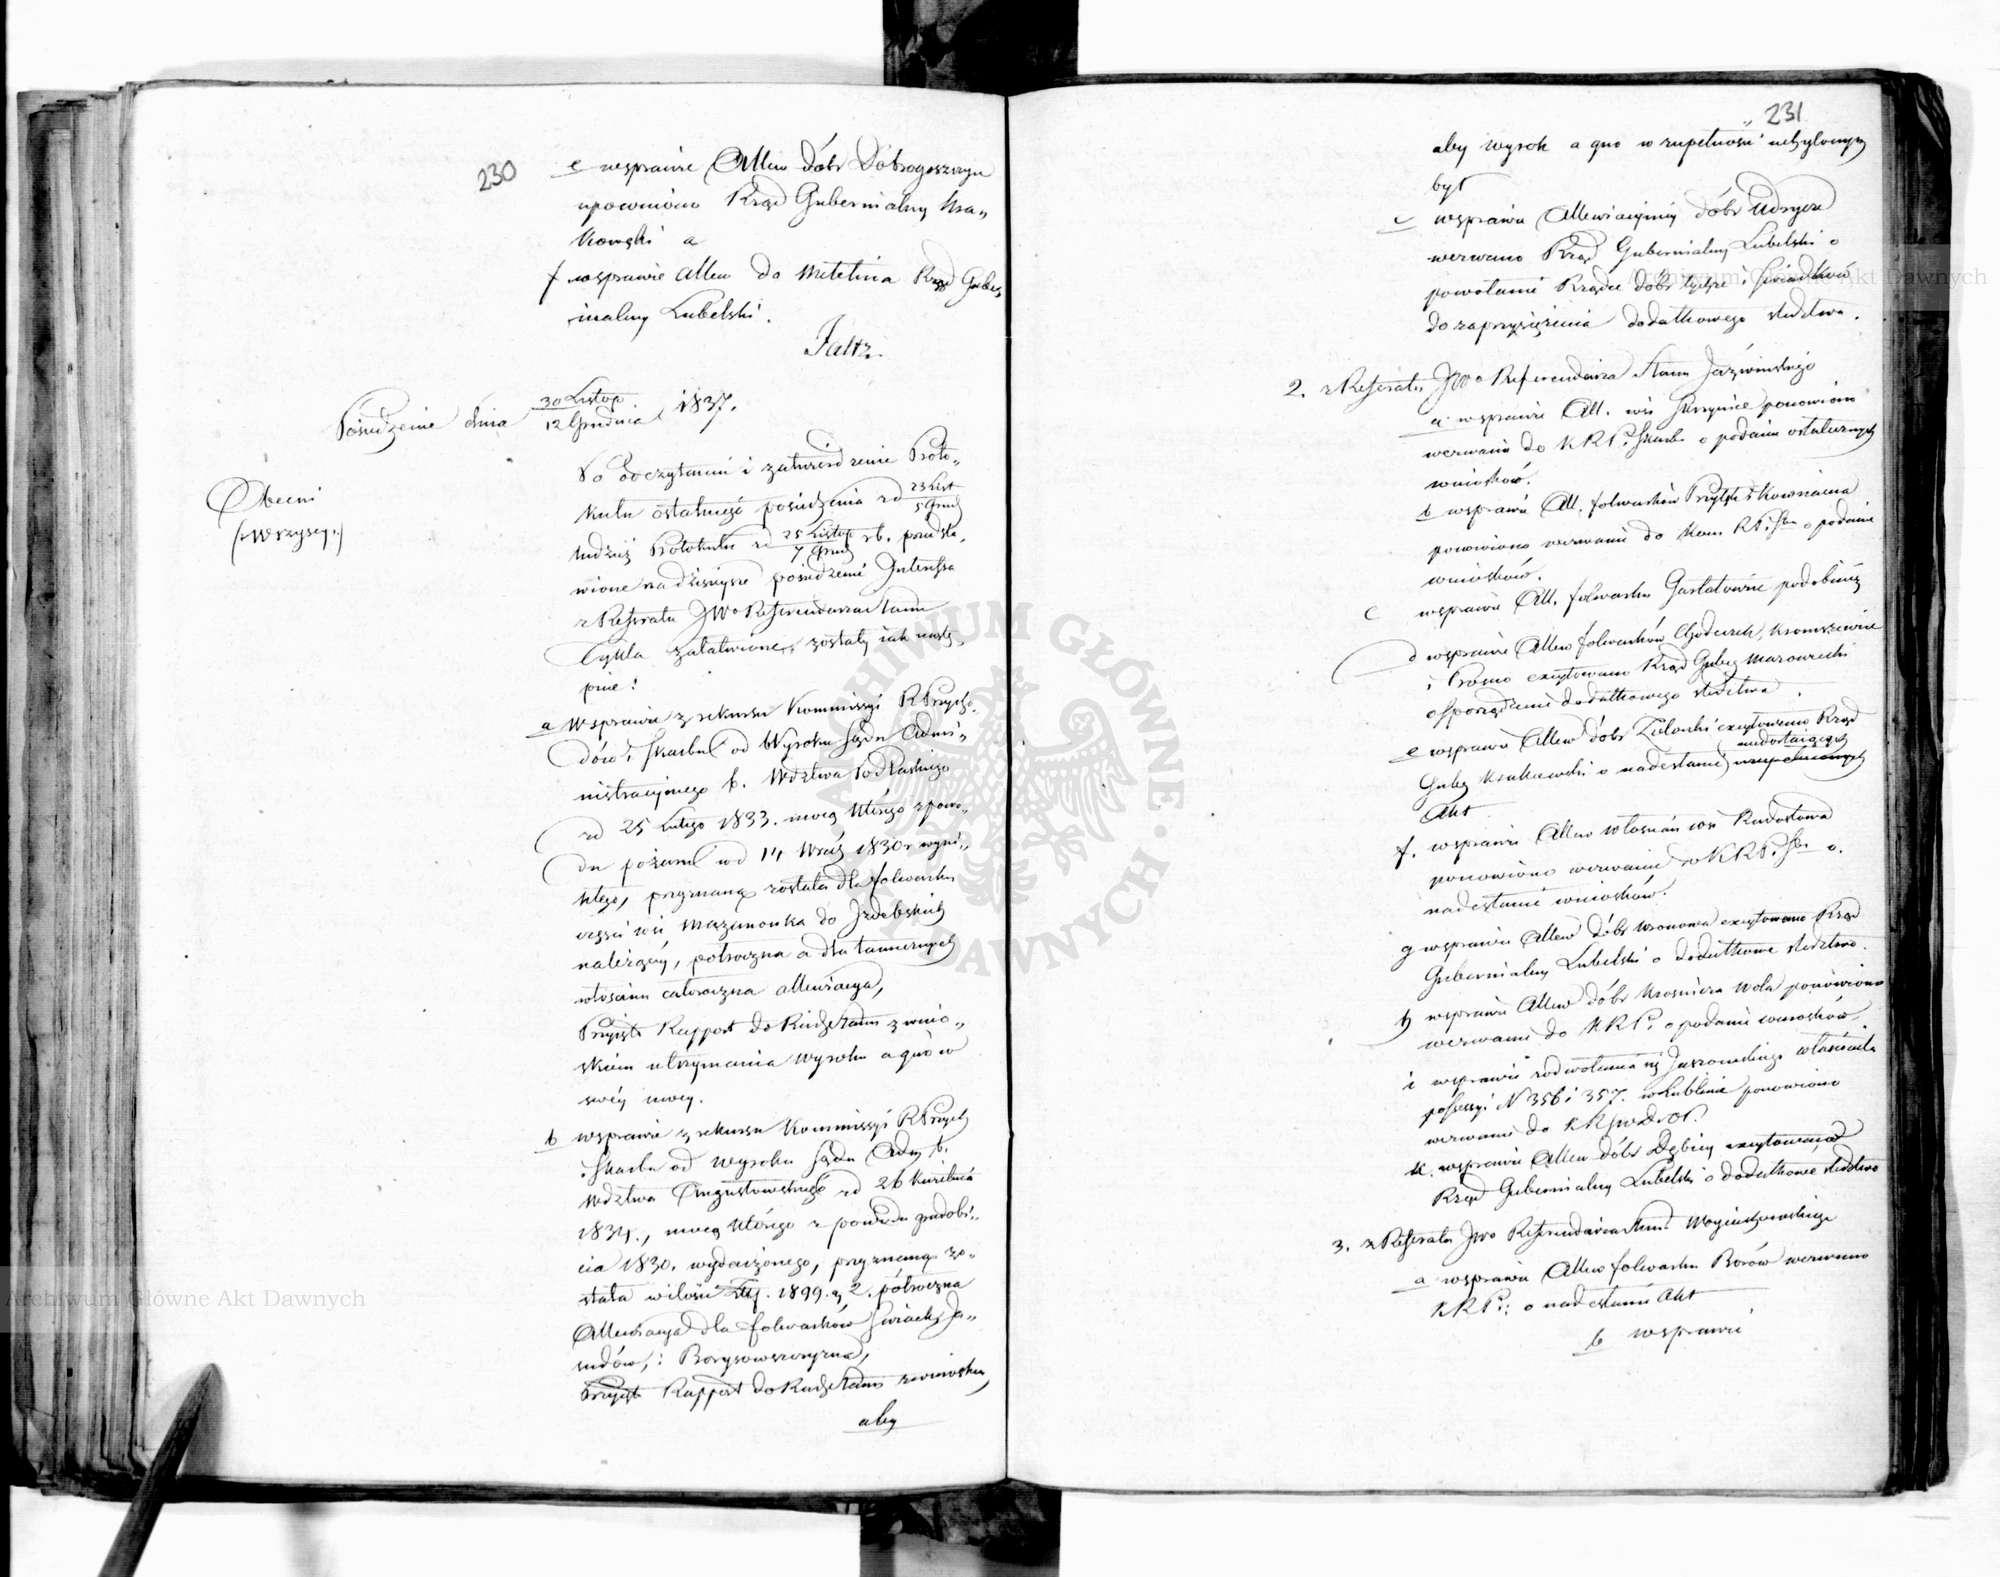 230
e w sprawie Allew dóbr Dobrogoszczyn
upowniono Rząd Gubernialny Kra„
kowski a
f w sprawie Allew do Metelina Rząd Guber„
nialny Lubelski.
Faltz.
Posiedzenie dnia 30 Listop / 12 Grudnia 1837.
Obecni
(:Wszyscy:)
Po odczytaniu i zatwierdzenie Proto„
kułu ostatniego posiedzenia z d 23 List / 5 Grud
tudzież Protokułu z d 25 Listop / 7 Grud r b. przedsta„
wione na dzisiejsze posiedzenie Interessa
z Referatu JWo Referendarza Stanu
Cykla załatwione, zostały jak nastę„
puie:
a W sprawie z rekursu Kommissyi R Przycho„
dów i Skarbu od Wyroku Sądu Admi„
nistracyjnego b. Wdztwa Podlaskiego
z d 25 Lutego 1833. mocą którego z powo„
du pożaru w d 14 Wrześ 1830 r wyni„
kłego, przyznaną została dla folwarku
części wsi Mazanowka do Izdebskich
należący, półroczna a dla tamecznych
włościan całoroczna allewiacya,
Przyjęto Rapport do Rady Stanu z wnio„
skiem utrzymania wyroku a quo w
swéy mocy.
b w sprawie z rekursu Kommissyi R Przych
i Skarbu od Wyroku Sądu Adm b.
Wdztwa Augustowskiego z d 26 Kwietnia
1834., mocą którego z powodu gradobi„
cia 1830. wydarzonego, przyznaną zo„
stała w ilości Złł. 1899. g 2. półroczna
Allewiacya dla folwarków Swiack, Ja„
sudów, i Borysowszczyzna,
Przyjęto Rapport do Rady Stanu z wnioskiem
aby
231
aby wyrok a quo w zupełności uchylonym
był
c w sprawie Allewiacyjnéy dóbr Udrycze
wezwano Rząd Gubernialny Lubelski o
powołanie Rządcę dóbr tychże i świadków
do zaprzysiężenia dodatkowego śledztwa.
2. z Referatu JWo Referendarza Stanu Jaźwińskiego
a w sprawie All. wsi Skrzynice ponowiono
wezwanie do K R P. i Skarbu o podanie ostatecznych
wniosków.
b w sprawie All. folwarków Przytyk i Kownacica
ponowiono wezwanie do Kom. R P. i Sbu o podanie
wniosków.
c w sprawie All. folwarku Gułatowice podobnież
d w sprawie Allew folwarków Chodeczek, Kromszewice
i Psowo excytowano Rząd Guber Mazowiecki
o sporządzenie dodatkowego śledztwa.
e w sprawie Allew dóbr Zielonki excytowano Rząd
Guber Krakowski o nadesłanie niedostających
Akt
f. w sprawie Allew włościan wsi Radostowa
ponowiono wezwanie do K R P. i Sbu o.
nadesłanie wniosków.
g w sprawie Allew dóbr Wronowa excytowano Rząd
Gubernialny Lubelski o dodatkowe śledztwo.
h w sprawie Allew dóbr Krosnicza Wola ponowiono
wezwanie do K R P. o podanie wniosków.
i w sprawie z odwołania się Jaszowskiego właściciela
possessyi N 356 i 357. w Lublinie ponowiono
wezwanie do K R
k. w sprawie Allew dóbr Dębicy excytowano
Rząd Gubernialny Lubelski o dodatkowe śledztwo
3. z Referatu JWo Referendarza Stanu Wojciechowskiego
a w sprawie Allew folwarku Borów wezwano
K R P. i o nadesłanie Akt
b w sprawie